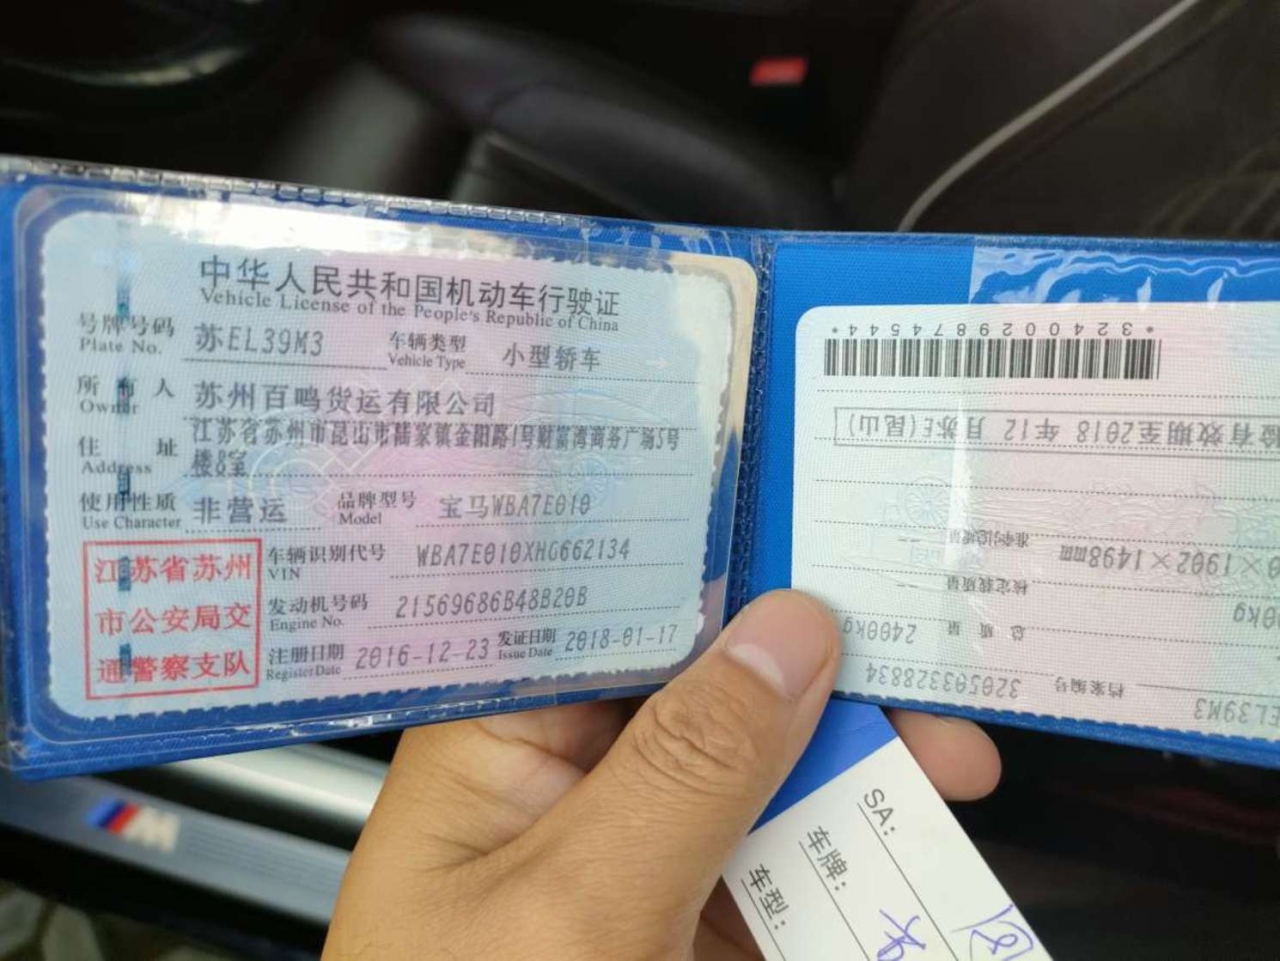 中华人民共和国机动车行驶证
Vehicle License of the People's Republic of China
号牌号码 苏EL39M3 车辆类型 小型轿车
Plate No. Vehicle Type
所有人 苏州百鸣货运有限公司
Owner
住址 江苏省苏州市昆山市陆家镇金阳路1号财富湾商务广场5号
Address 楼8室
使用性质 非营运 品牌型号 宝马WBA7E010
Use Character Model
江苏省苏州
市公安局交
通警察支队
车辆识别代号 WBA7E010XHG662134
VIN
发动机号码 21569686B48B20B
Engine No.
注册日期 2016-12-23 发证日期 2018-01-17
Register Date Issue Date
EL39M3 档案编号 320503328834
总质量 2400kg
0kg 核定载质量 --
0×1902×1498mm 准牵引总质量 --
验有效期至2018年12月苏E(昆山)
*3240029874544*
SA:
车牌:
车型:
M